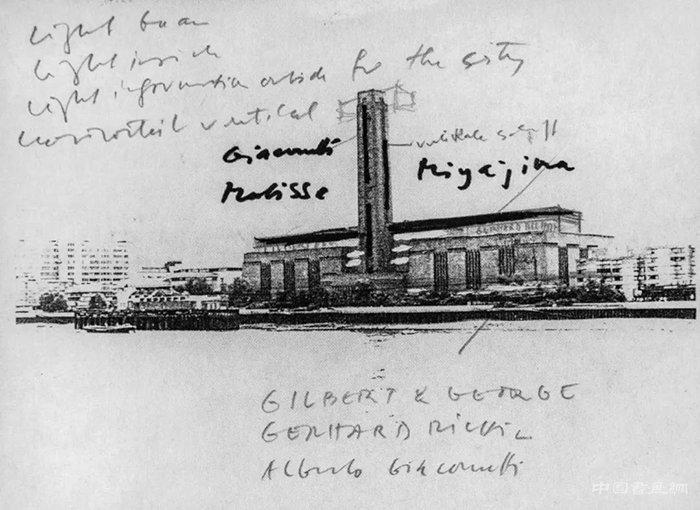 light beam
light inside
light information outside for the city
horizontal vertical
Giacometti
Matisse
Miyajima
GERHARD RICHT
GILBERT & GEORGE
GERHARD RICHTER
Alberto Giacometti
中国书画网